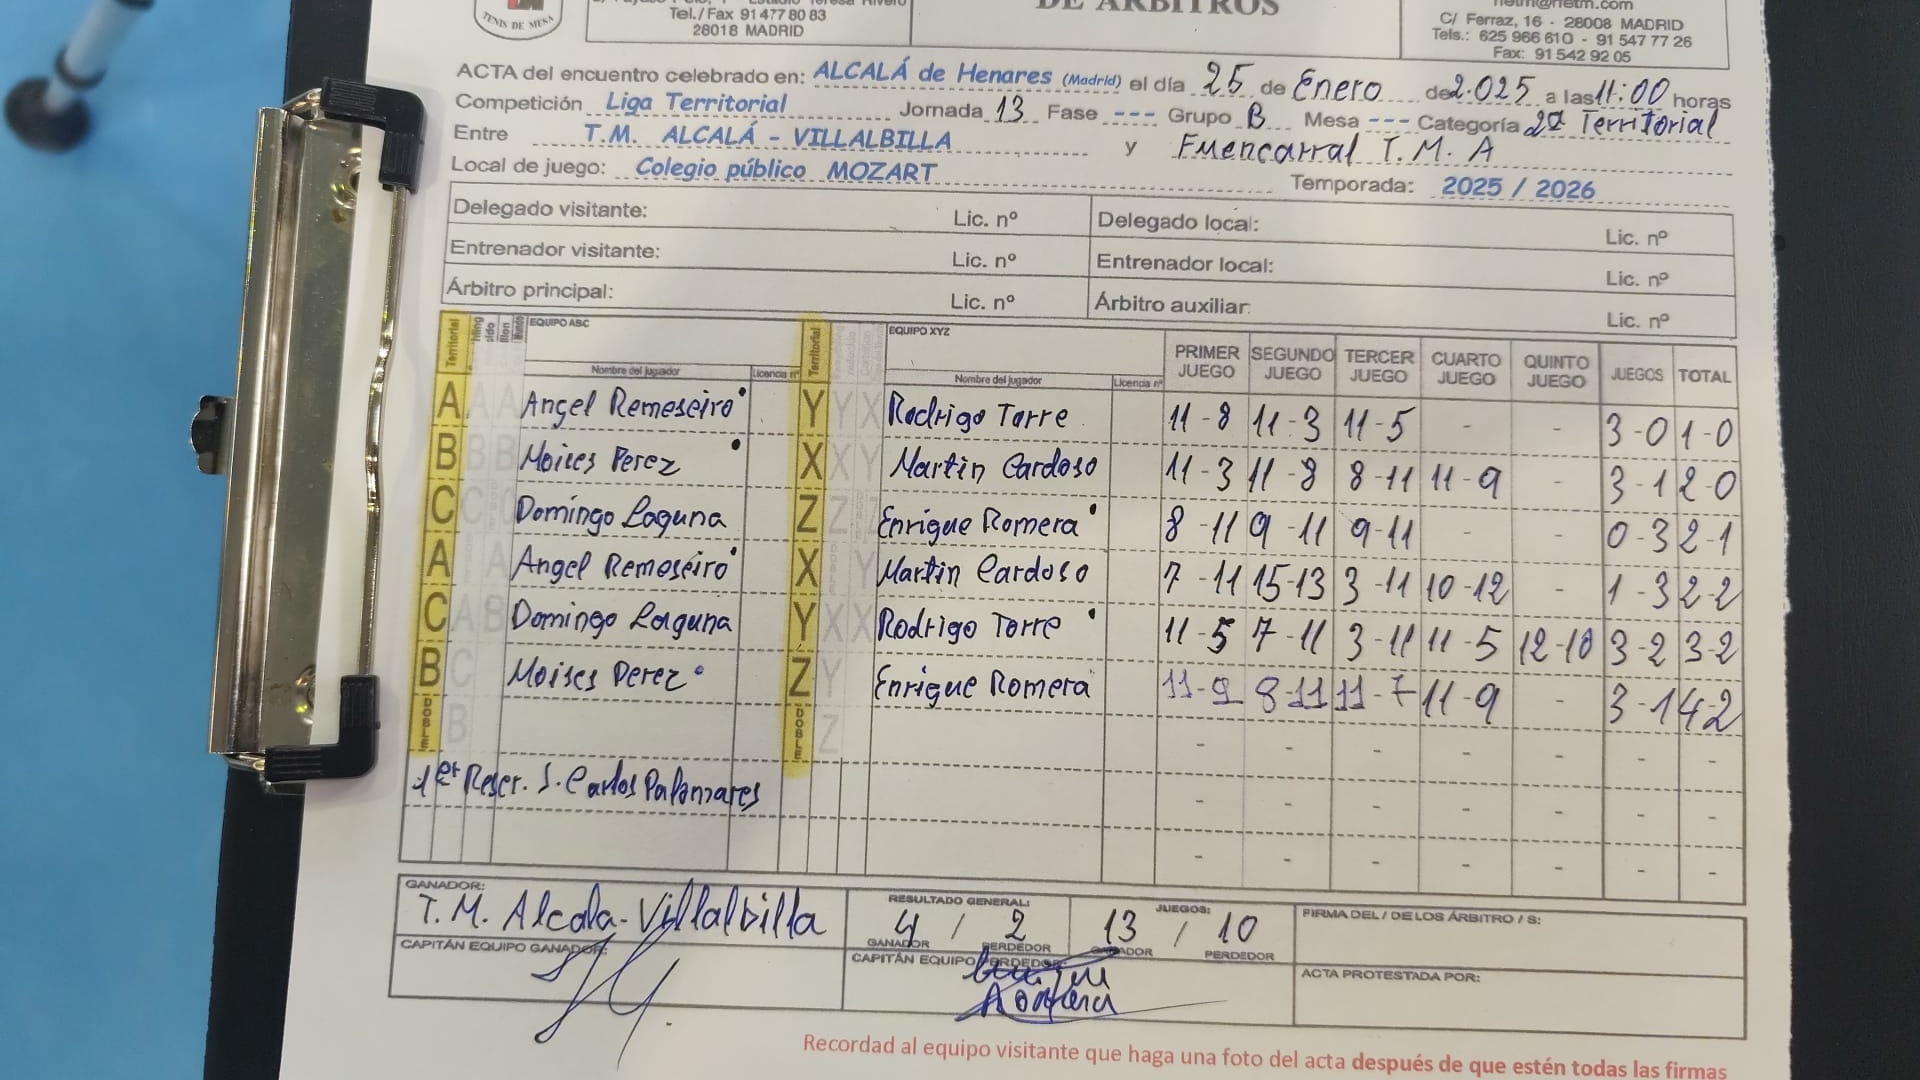 TENIS DE MESA
Tel./Fax 91 477 80 83
28018 MADRID
DE ÁRBITROS
C/ Ferraz, 16 - 28008 MADRID
Tels.: 625 966 610 - 91 547 77 26
Fax: 91 542 92 05
ACTA del encuentro celebrado en: ALCALÁ de Henares (Madrid) el día 25 de Enero de 2.025 a las 11:00 horas
Competición Liga Territorial Jornada 13 Fase --- Grupo B Mesa --- Categoría 2ª Territorial
Entre T.M. ALCALÁ - VILLALBILLA y Fuencarral T.M. A
Local de juego: Colegio público MOZART Temporada: 2025 / 2026
Delegado visitante: Lic. nº Delegado local: Lic. nº
Entrenador visitante: Lic. nº Entrenador local: Lic. nº
Árbitro principal: Lic. nº Árbitro auxiliar: Lic. nº
Territorial EQUIPO ABC Nombre del jugador Licencia nº Territorial EQUIPO XYZ Nombre del jugador Licencia nº PRIMER JUEGO SEGUNDO JUEGO TERCER JUEGO CUARTO JUEGO QUINTO JUEGO JUEGOS TOTAL
A A A Angel Remeseiro Y Y X Rodrigo Torre 11-8 11-3 11-5 - - 3-0 1-0
B B B Moises Perez X X Y Martin Cardoso 11-3 11-8 8-11 11-9 - 3-1 2-0
C C C Domingo Laguna Z Z Z Enrique Romera 8-11 9-11 9-11 - - 0-3 2-1
A A Angel Remeseiro X Y Martin Cardoso 7-11 15-13 3-11 10-12 - 1-3 2-2
C A B Domingo Laguna Y X X Rodrigo Torre 11-5 7-11 3-11 11-5 12-10 3-2 3-2
B C Moises Perez Z Y Enrique Romera 11-9 8-11 11-7 11-9 - 3-1 4-2
DOBLE B DOBLE Z - - - - - - -
1er Reser. J. Carlos Palomares - - - - - - -
- - - - - - -
GANADOR: T.M. Alcala-Villalbilla RESULTADO GENERAL: 4 / 2 GANADOR PERDEDOR JUEGOS: 13 / 10 GANADOR PERDEDOR FIRMA DEL / DE LOS ÁRBITRO / S:
CAPITÁN EQUIPO GANADOR: CAPITÁN EQUIPO PERDEDOR: ACTA PROTESTADA POR:
Recordad al equipo visitante que haga una foto del acta después de que estén todas las firmas